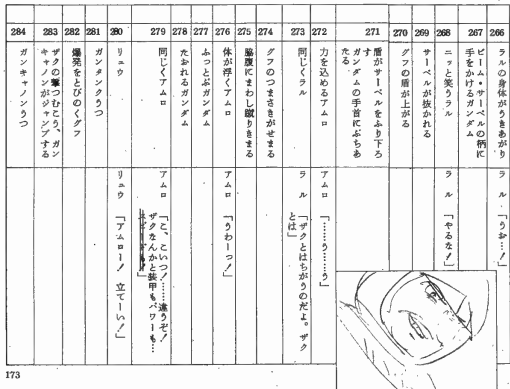 266
ラルの身体がうきあがる
「うお…！」
267
ビーム・サーベルの柄に
手をかけるガンダム
268
ニッと笑うラル
ラル
「やるな！」
269
サーベルが抜かれる
270
グフの盾が上がる
271
盾がサーベルをふり下ろ
す
ガンダムの手首にぶちあ
たる
272
力を込めるアムロ
アムロ
「……う……う」
273
同じくラル
ラル
「ザクとはちがうのだよ。ザク
とは」
274
グフのつまさきがせまる
275
脇腹にまわし蹴りきまる
276
体が浮くアムロ
アムロ
「うわーっ！」
277
ふっとぶガンダム
278
たおれるガンダム
279
同じくアムロ
アムロ
「こ、こいつ！……違うぞ！
ザクなんかと装甲もパワーも…
」
280
リュウ
リュウ
「アムロー！　立てーい！」
281
ガンタンクうつ
282
爆発をとびのくグフ
283
ザクの撃つむこう、ガン
キャノンがジャンプする
284
ガンキャノンうつ
173